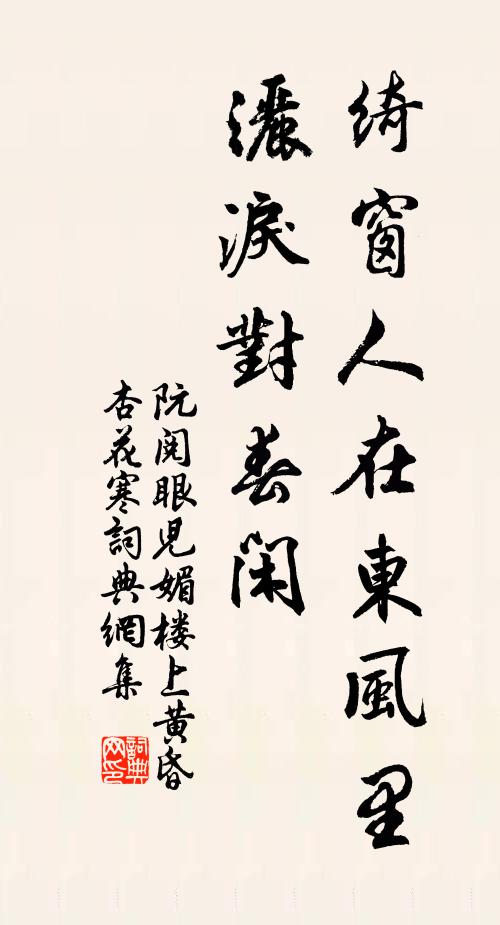 綺窗人在東風里
灑淚對春閑
阮閱眼兒媚楼上黃昏
杏花寒詞典網集
詞典网印